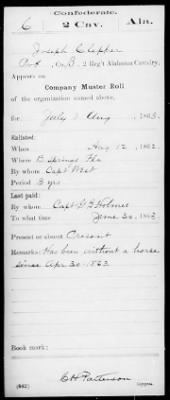 Confederate.
6 2 Cav. Ala.
Joseph Clepper
Pvt, Co. B, 2 Reg't Alabama Cavalry.
Appears on
Company Muster Roll
of the organization named above,
for July & Aug, 1863.
Enlisted:
When Aug 12, 1862.
Where B. Springs Fla
By whom Capt West
Period 3 yrs
Last paid:
By whom Capt. G B Holmes
To what time June 30, 1863.
Present or absent Present
Remarks: Has been without a horse
since Apr 30-1863
Book mark:
(642) Copyist.